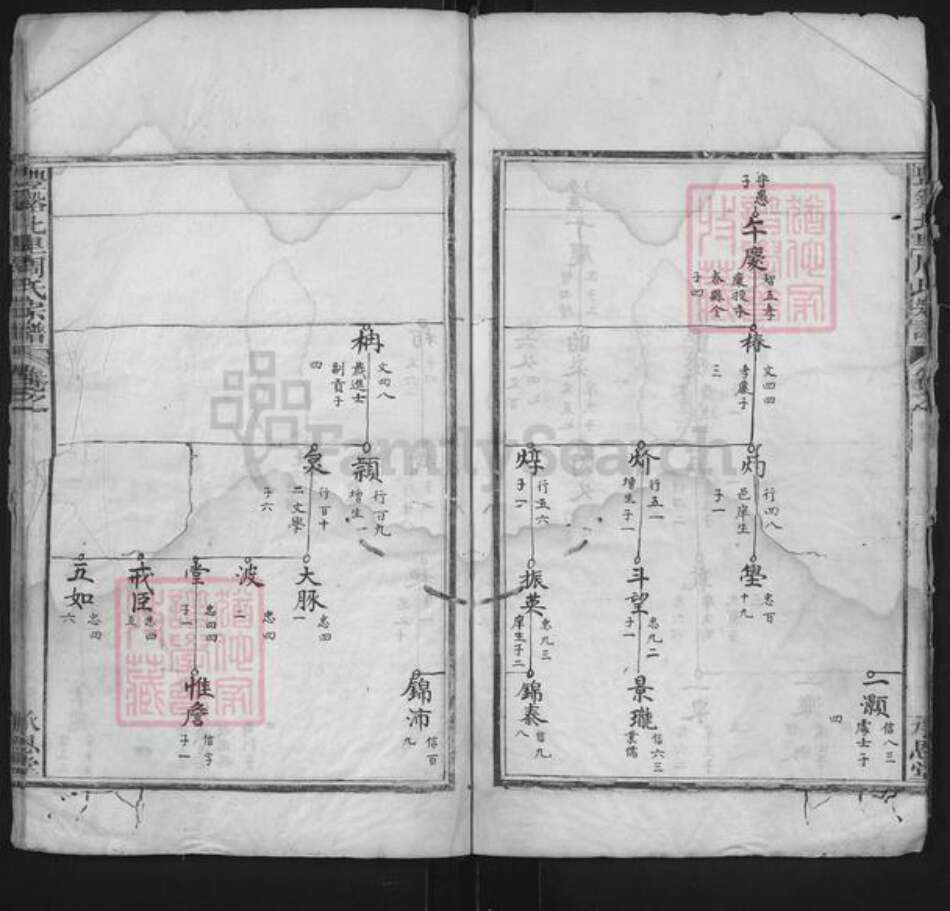 守愚
子
午慶
椿
文四四
孝廉子
三
炳
行四八
邑庠生
子一
忠百
十九
炌
行五一
增生子一
斗望
忠九二
子一
景瓏
信六三
業儒
焞
行五六
子二
振英
忠九三
庠生子二
錦泰
信九
八
一灝
信八三
處士子
四
錦沛
信百
九
柟
文四八
歲進士
副貢子
四
潁
行百九
增生
行百十
二文學
子六
大豚
忠四
一
波
忠四
二
堂
忠四四
子一
惟詹
信字
子一
戒臣
忠四
五
五如
忠四
六
豐谿北里周氏宗譜
卷之一
承恩堂
FamilySearch